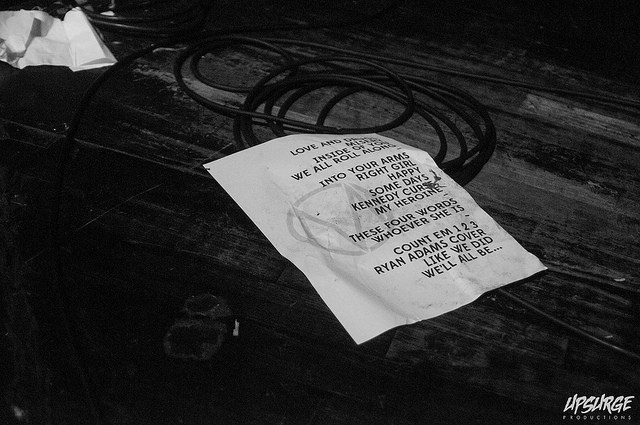 LOVE AND
INSIDE OF YOU
WE ALL ROLL ALONG
INTO YOUR ARMS
RIGHT GIRL
HAPPY
SOME DAYS
KENNEDY CURSE
MY HEROINE
THESE FOUR WORDS
WHOEVER SHE IS
COUNT EM 1 2 3
RYAN ADAMS COVER
LIKE WE DID
WE'LL ALL BE...
UPSURGE
PRODUCTIONS